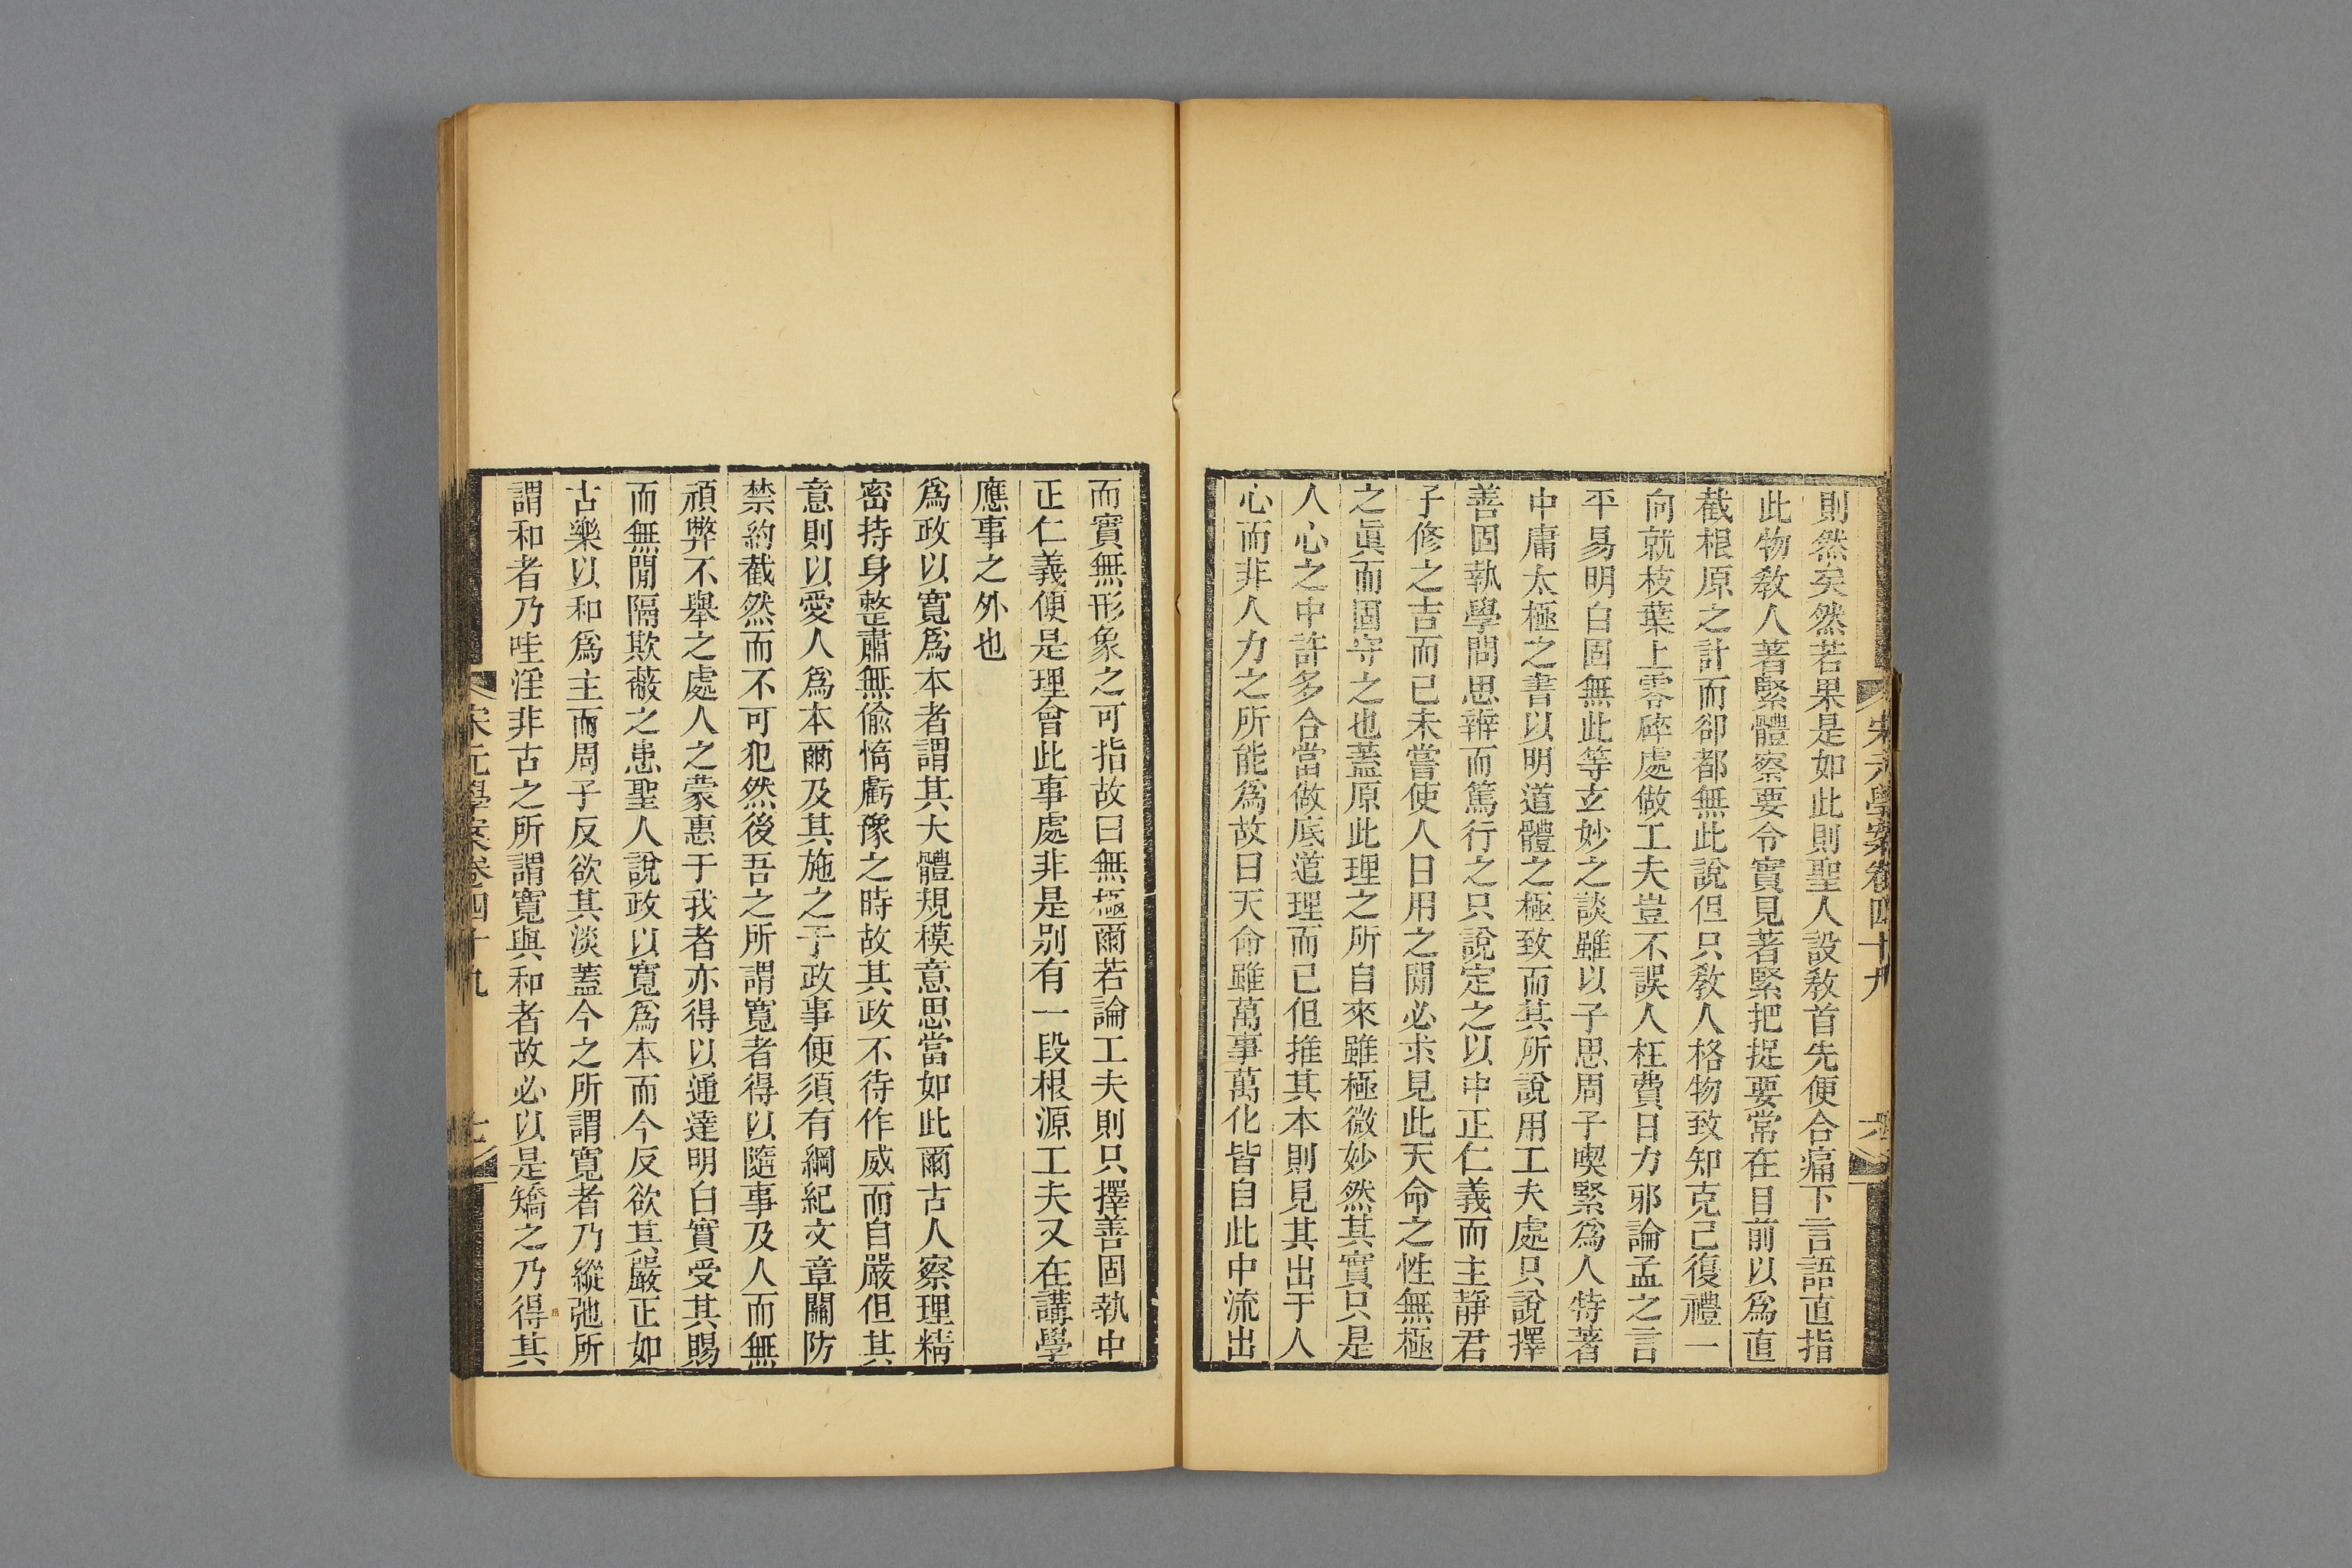 宋元學案卷四十九
六
則然矣然若果是如此則聖人設敎首先便合痛下言語直指
此物敎人著緊體察要令實見著緊把捉要常在目前以爲直
截根原之計而卻都無此說但只敎人格物致知克己復禮一
向就枝葉上零碎處做工夫豈不誤人枉費日力邪論孟之言
平易明白固無此等玄妙之談雖以子思周子喫緊爲人特著
中庸太極之書以明道體之極致而其所說用工夫處只說擇
善固執學問思辨而篤行之只說定之以中正仁義而主靜君
子修之吉而已未嘗使人日用之閒必求見此天命之性無極
之眞而固守之也蓋原此理之所自來雖極微妙然其實只是
人心之中許多合當做底道理而已但推其本則見其出于人
心而非人力之所能爲故曰天命雖萬事萬化皆自此中流出
而實無形象之可指故曰無極爾若論工夫則只擇善固執中
正仁義便是理會此事處非是别有一段根源工夫又在講學
應事之外也
爲政以寬爲本者謂其大體規模意思當如此爾古人察理精
密持身整肅無偷惰戲豫之時故其政不待作威而自嚴但其
意則以愛人爲本爾及其施之于政事便須有綱紀文章關防
禁約截然而不可犯然後吾之所謂寬者得以隨事及人而無
頑弊不舉之處人之蒙惠于我者亦得以通達明白實受其賜
而無閒隔欺蔽之患聖人說政以寬爲本而今反欲其嚴正如
古樂以和爲主而周子反欲其淡蓋今之所謂寬者乃縱弛所
謂和者乃哇淫非古之所謂寬與和者故必以是矯之乃得其
宋元學案卷四十九
七